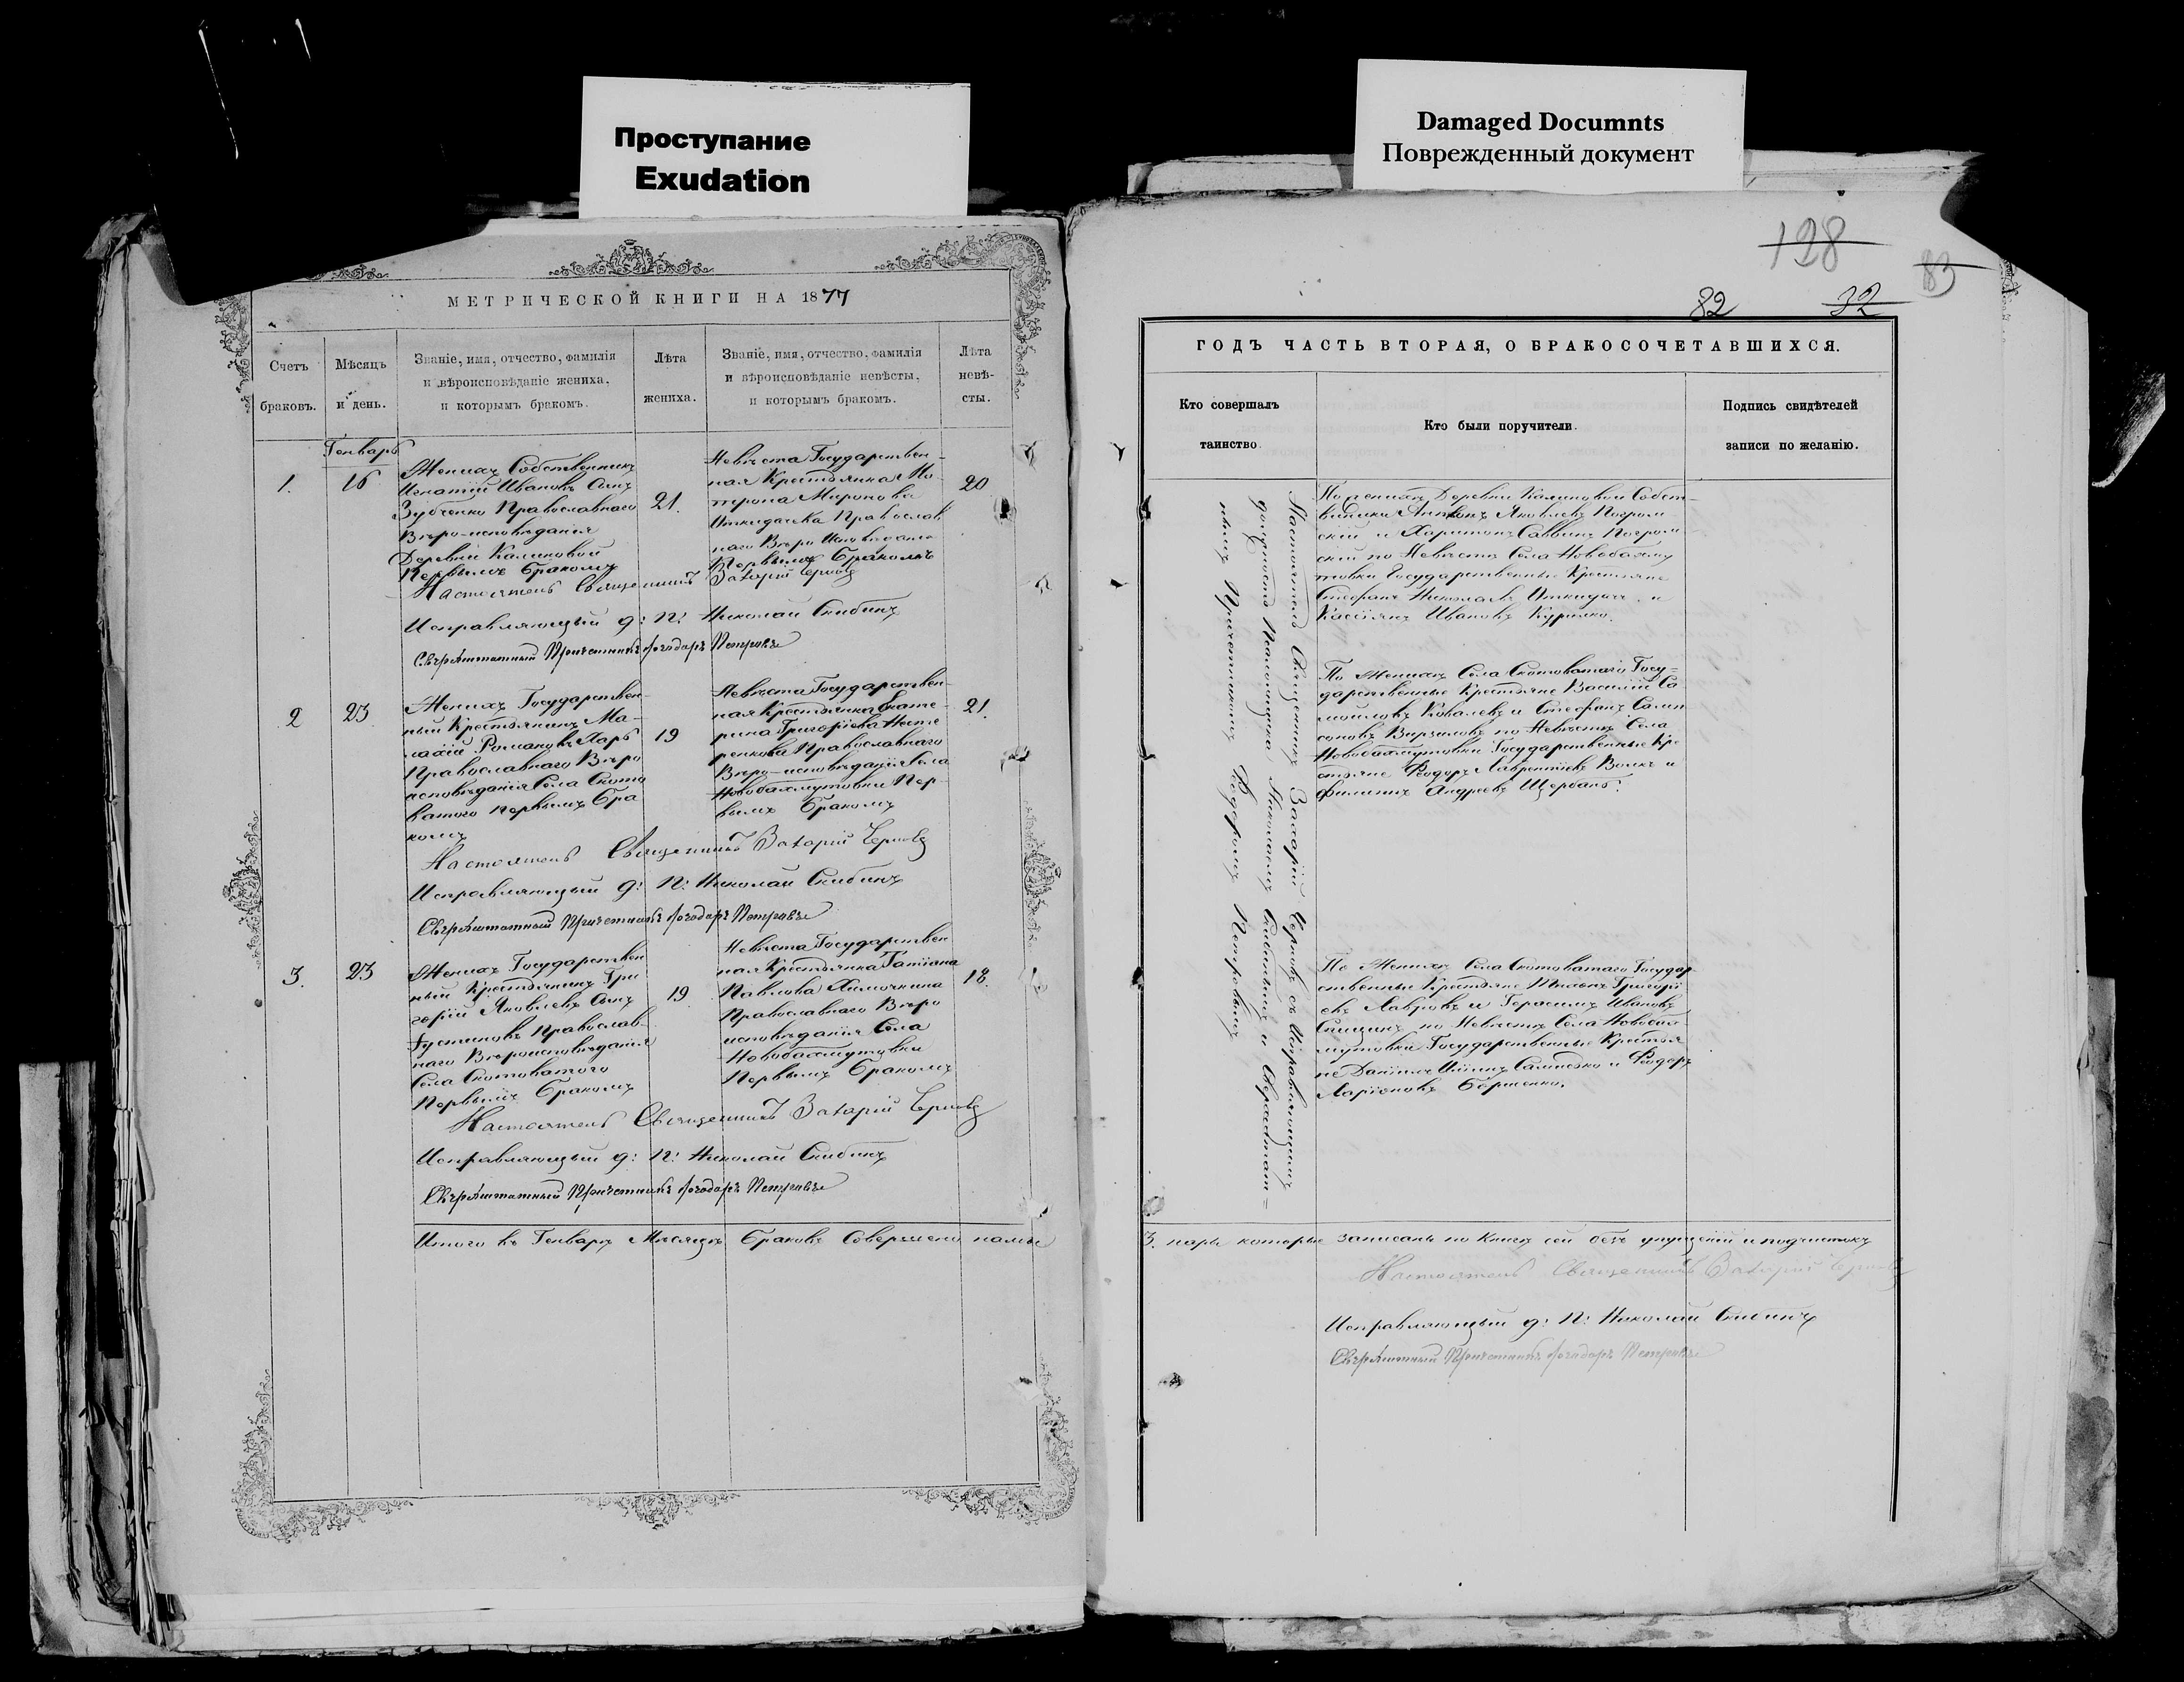 Проступание
Exudation
Damaged Documnts
Поврежденный документ
МЕТРИЧЕСКОЙ КНИГИ НА 1877
Счетъ
браковъ.
Мѣсяцъ
и день.
Званіе, имя, отчество, фамилія
и вѣроисповѣданіе жениха,
и которымъ бракомъ.
Лѣта
жениха.
Званіе, имя, отчество, фамилія
и вѣроисповѣданіе невѣсты,
и которымъ бракомъ.
Лѣта
невѣ-
сты.
Генварь
1.
16
Женихъ Собственникъ
Игнатій Ивановъ Сынъ
Зубченко Православнаго
Вѣро-исповѣданія
Деревни Калиновой
Первымъ бракомъ
21.
Невѣста Государствен-
ная Крестьянка Ма-
трона Миронова
Православ
наго Вѣро Исповѣдані
Первымъ бракомъ
20
Настоятель Священникъ Захарій Черновъ
Исправляющій д: П: Николай Скибинъ
Сверхштатный Причетникъ Ѳеодоръ Петровъ
2
23
Женихъ Государствен-
ный Крестьянинъ Ма-
лахій Романовъ Харь
Православнаго Вѣро
исповѣданія Села Ското
ватого первымъ бра
комъ
19
Невѣста Государствен-
ная Крестьянка Екате-
рина Григоріева Несте
ренкова Православнаго
Вѣро-исповѣданія Села
Новобахмутовки Пер-
вымъ бракомъ
21.
Настоятель Священникъ Захарій Черновъ
Исправляющій д: П: Николай Скибинъ
Сверхштатный Причетникъ Ѳеодоръ Петровъ
3.
23
Женихъ Государствен
ный Крестьянинъ Гри
горій Яковлевъ Сынъ
Православ-
наго Вѣроисповѣданія
Села Скотоватого
Первымъ бракомъ
19
Невѣста Государствен
ная Крестьянка Татіана
Павлова Химочкина
Православнаго Вѣро
исповѣданія Села
Новобахмутовки
Первымъ бракомъ
18.
Настоятель Священникъ Захарій Черновъ
Исправляющій д: П: Николай Скибинъ
Сверхштатный Причетникъ Ѳеодоръ Петровъ
Итого въ Генварѣ Мѣсяцѣ браковъ Совершено нами
128
83
82
32
ГОДЪ ЧАСТЬ ВТОРАЯ, О БРАКОСОЧЕТАВШИХСЯ.
Кто совершалъ
таинство.
Кто были поручители.
Подпись свидѣтелей
записи по желанію.
Настоятель Священникъ Захарій Черновъ съ Исправляющимъ
должность Псаломщика Николаемъ Скибинымъ и Сверхштат=
нымъ Причетникомъ Ѳеодоромъ Петровымъ
По женихѣ Деревни Калиновой Собст-
венники Антонъ Яковлевъ Погром-
скій и Харитонъ Саввинъ Погром
скій по Невѣстѣ Села Новобахму
товки Государственные Крестьяне
Стефанъ Николаевъ и
Кассіянъ Ивановъ Курилко.
По Женихѣ Села Скотоватаго Госу=
дарственные Крестьяне Василій Са
мойловъ Ковалевъ и Стефанъ Самп
соновъ по Невѣстѣ Села
Новобахмутовки Государственные Кре
стьяне Ѳеодоръ Лаврентіевъ Волкъ и
Филиппъ Андреевъ Щербакъ.
По Женихѣ Села Скотоватаго Государ-
ственные Крестьяне Григорі
евъ Лавровъ и Герасимъ Ивановъ
по Невѣстѣ Села Новобах
мутовки Государственные Крестья
не Даніилъ и Ѳеодоръ
Ларіоновъ
3. пары которые записаны по Книгѣ сей безъ упущеній и подчистокъ
Настоятель Священникъ Захарій Черновъ
Исправляющій д: П: Николай Скибинъ
Сверхштатный Причетникъ Ѳеодоръ Петровъ